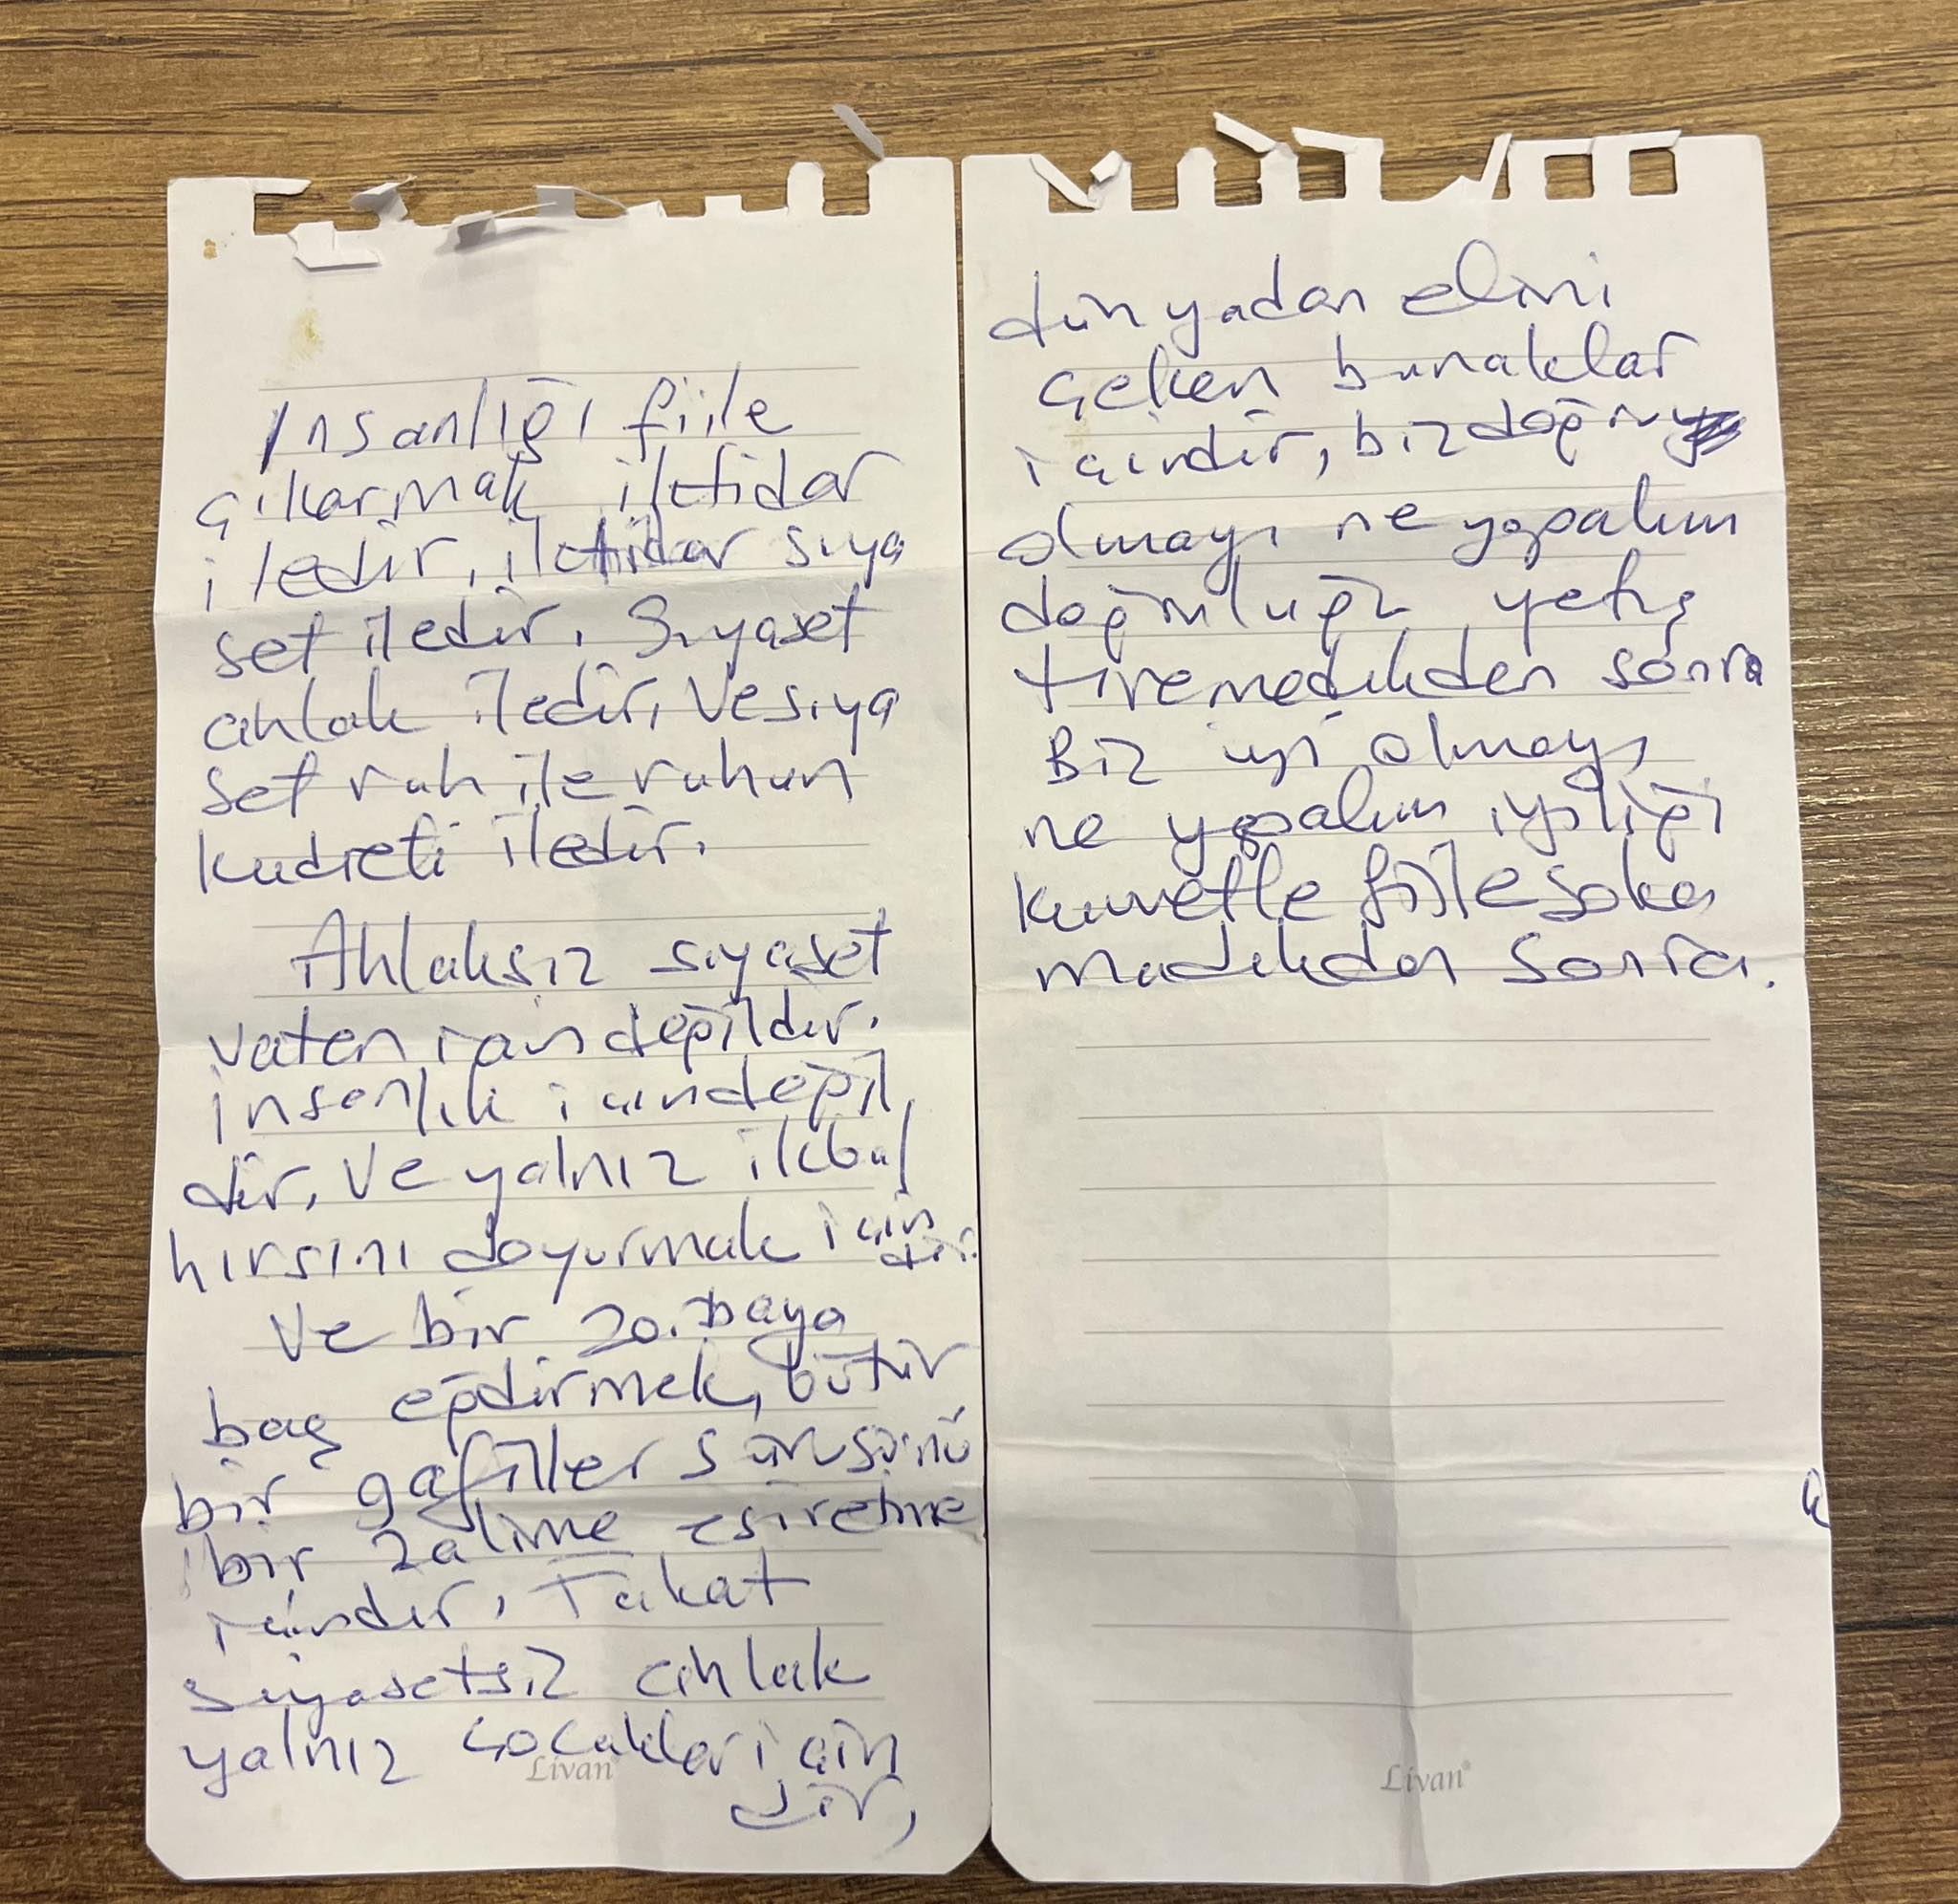 İnsanlığı fiile
çıkarmak iktidar
iledir, iktidar siya
set iledir. Siyaset
ahlak iledir, ve siya
set ruh ile ruhun
kudreti iledir.
Ahlaksız siyaset
vatan için değildir.
insanlık için değil
dir. Ve yalnız ikbal
hırsını doyurmak için
dir.
Ve bir zorbaya
baş eğdirmek, bütün
bir gafiller sürüsünü
bir zalime esir etme
içindir, Fakat
siyasetsiz ahlak
yalnız çocuklar için
dir,
Livan
dünyadan elini
çeken bunaklar
içindir, biz doğru
olmayı ne yapalım
doğruluğu yetiş
tiremedikden sonra
Biz iyi olmayı
ne yapalım iyiliği
kuvvetle fiile soka
madıkdan sonra.
Livan